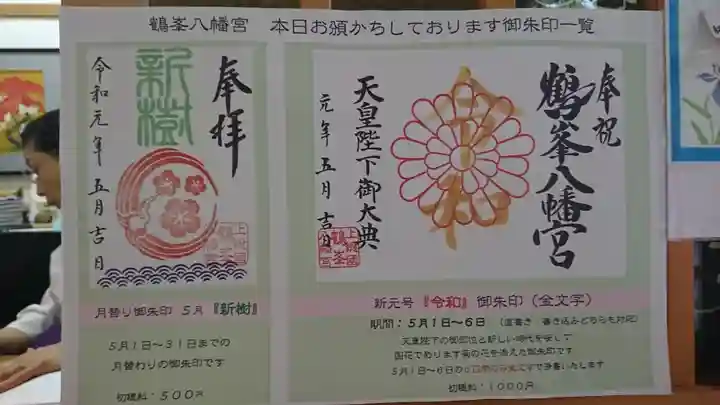 鶴峯八幡宮　本日お頒かちしております御朱印一覧
奉拝
新樹
令和元年五月吉日
月替り御朱印　5月『新樹』
5月1日〜31日までの
月替わりの御朱印です
初穂料：500円
奉祝
鶴峯八幡宮
令和
天皇陛下御大典
元年五月吉日
新元号『令和』御朱印（金文字）
期間：5月1日〜6日（直書き　書き込みどちらも対応）
天皇陛下の御即位と新しい時代を
国花であります菊の花を添えた御朱印です
5月1日〜6日の
初穂料：1000円